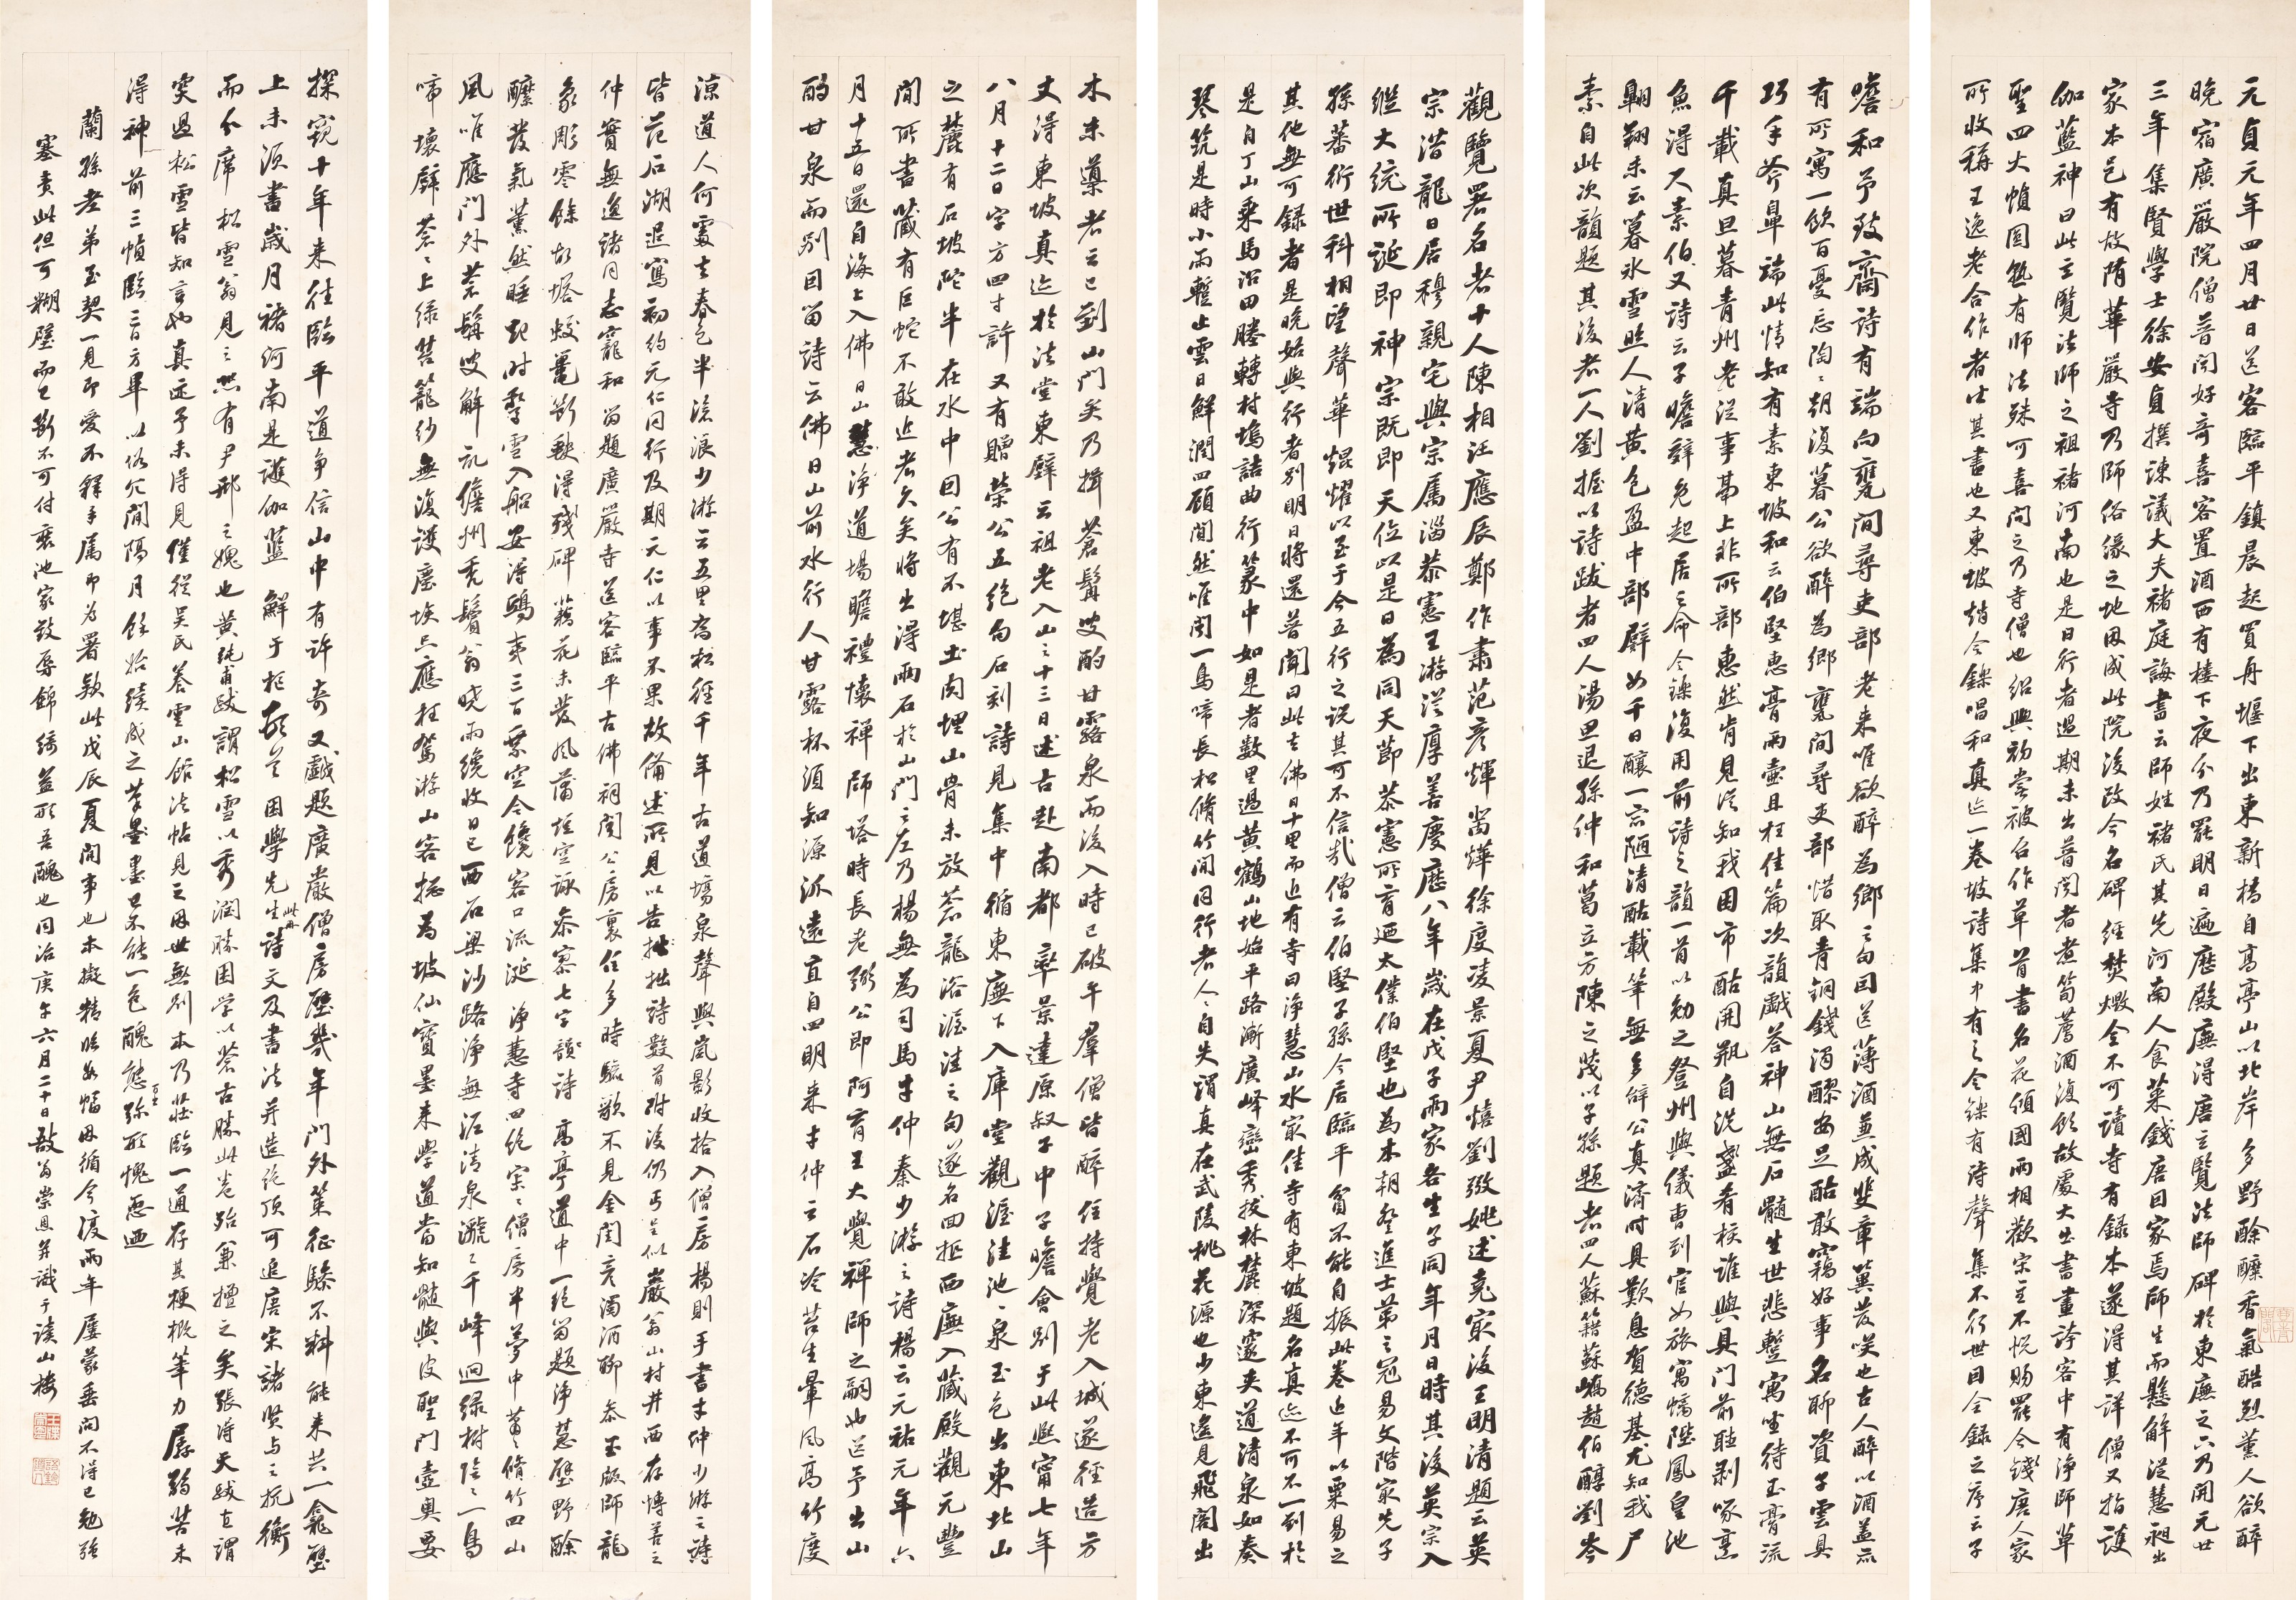 元貞元年四月廿日送客臨平鎮晨起買舟堰下出東新橋自高亭山以北岸多野酴醿香氣酷烈薰人欲醉
晚宿廣嚴院僧普閏好奇喜客置酒西有樓下夜分乃罷明日遍歷殿廡得唐立覽法師碑於東廡之六乃開元廿
三年集賢學士徐安貞撰諫議大夫褚庭誨書云師姓褚氏其先河南人食菜錢唐因家焉師生而懸解從慧昶出
家本邑有故隋華嚴寺乃師俗緣之地因成此院後改今名碑經焚燬全不可讀寺有錄本遂得其詳僧又指護
伽藍神曰此主覽法師之祖褚河南也是日行者過期未出普閏者煮筍薦酒復飲故處大出書畫誇客中有淨師草
聖四大幀圓熟有師法殊可喜問之乃寺僧也紹興初嘗被召作草首書名花傾國兩相歡宋主不悅賜罷今錢唐人家
所收稱王逸老合作者皆其書也又東坡趙令鑠唱和真迹一卷坡詩集中有之令鑠有詩聲集不行世因全錄之序云子
瞻和予致齋詩有端向甕間尋吏部老來唯欲醉為鄉之句因送薄酒並成斐章冀發笑也古人醉以酒蓋亦
有所寓一飲百憂忘陶陶朝復暮公欲醉為鄉甕間尋吏部惜取青銅錢濁醪安足酤敢竊好事名聊資子雲具
巧手斧鼻端此情知有素東坡和云伯堅惠膏兩壺且枉佳篇次韻戲答神山無石髓生世悲暫寓坐待玉膏流
千載真旦暮青州老從事鬲上非所部惠然肯見從知我困市酤開瓶自洗盞肴核誰與具門前聽剝啄烹
魚得尺素伯又詩云子瞻辭免起居之命令鑠復用前詩之韻一首以勉之登州與儀曹到官如旅寓蠕陛鳳皇池
翱翔未云暮冰雪照人清黃色盈中部癖如千日釀一宗陋清酤載筆無多辭公真濟時具歎息賀德基尤知我尸
素自此次韻題其後者一人劉握以詩跋者四人湯思退孫仲和葛立方陳之茂以子孫題者四人蘇籍蘇嶠趙伯醇劉岑
觀覽署名者十人陳相汪應辰鄭作肅范彥煇喻燁徐度凌景夏尹熺劉孜姚述堯家後王明清題云英
宗潛龍日居穆親宅與宗屬淄恭憲王游從厚善慶歷八年歲在戊子兩家各生子同年月日時其後英宗入
繼大統所誕即神宗既即天位以是日為同天節恭憲所育迺太僕伯堅也為本朝登進士第之冠易文階家先子
孫蕃衍世科相望聲華焜燿以至于今五行之說其可不信哉僧云伯堅子孫今居臨平貧不能自振此卷近年以粟易之
其他無可錄者是晚始與行者別明日將還普聞曰此去佛日十里而近有寺曰淨慧山水寂佳寺有東坡題名真迹不可不一到於
是自丁山乘馬沿田塍轉村塢詰曲行篆中如是者數里過黃鶴山地始平路漸廣峰巒秀拔林麓深邃夾道清泉如奏
琴筑是時小雨暫止雲日鮮潤四顧闃然唯聞一鳥啼長松脩竹間同行者人人自失謂真在武陵桃花源也少東遙見飛閣出
木末導者云已到山門矣乃揖蒼髯叟酌甘露泉而後入時已破午群僧皆醉住持覺老入城遂徑造方
丈得東坡真迹於法堂東壁云祖老入山之十三日述古赴南都率景達原叔子中子瞻會別于此熙甯七年
八月十二日字方四寸許又有贈榮公五絕句石刻詩見集中循東廡下入庫堂觀渥洼池池泉玉色出東北山
之麓有石坡陀半在水中因公有不堪土肉埋山骨未放蒼龍浴渥洼之句遂名回抵西廡入藏殿觀元豐
間所書藏有巨蛇不敢近者久矣將出得兩石於山門之左乃楊無為司馬才仲秦少游之詩楊云元祐元年六
月十五日還自海上入佛日山慧淨道場瞻禮懷禪師塔時長老弼公即阿育王大覺禪師之嗣也送予出山
酌甘泉而別因留詩云佛日山前水行人甘露杯須知源派遠直自四明來才仲云石冷苔生暈風高竹度
涼道人何處去春色半滄浪少游云五里喬松徑千年古道場泉聲與嵐影收拾入僧房楊則手書才仲少游之詩
皆范石湖追寫初約元仁同行及期元仁以事不果故備述所見以告拙拙詩數首附後仍丐呈似巖翁山村井西存博善之
仲實無逸諸同志寵和留題廣嚴寺送客臨平古佛祠闍公房裏住多時驪歌不見金閨彥濁酒聊參玉版師龍
象彫零餘故塔蛟鼉斷缺得殘碑藕花未發風蒲短空詠參寥七字韻詩高亭道中一絕留題淨慧壁野酴
醿發氣薰然睡起時擎雪入船安得鴟夷三百乘空令饞客口流涎淨慧寺四絕寥寥僧房半夢中蕭蕭脩竹四山
風唯應門外蒼髯叟解記儋州禿鬢翁曉雨纔收日已西石梁沙路淨無泥清泉㶁㶁千峰迥綠樹陰陰一鳥
啼壞壁蒼蒼上綠苔籠紗無復護塵埃只應狂駕游山客猶為坡仙寶墨來學道當知髓與皮聖門壼奧要
探窺十年來往臨平道爭信山中有許奇又戲題廣嚴僧房壁幾年門外策征驂不料能來共一龕壁
上未須書歲月褚河南是護伽藍鮮于樞頓首困學先生詩文及書法并造絕頂可追唐宋諸賢与之抗衡
而分席松雪翁見之煞有尹邢之媿也黃純甫跋謂松雪以秀潤勝困學以蒼古勝此卷殆兼擅之矣張得天跋直謂
突過松雪皆知言也真迹予未得見僅從吳氏養雲山館法帖見之因世無別本乃莊臨一通存其梗概筆力孱弱苦未
得神前三幀臨三日方畢以俗冗間隔月餘始續成之筆墨遂已不能一色醜態百出弥形愧恧迺
蘭孫老弟至契一見即愛不釋手屬即為署款此戊辰夏間事也本擬精臨數幅因循今復兩年屢蒙垂問不得已勉強
塞責此但可糊壁而已斷不可付裝池家致辱錦綺益形吾醜也同治庚午六月二十日敔翁崇恩并識于讀山樓